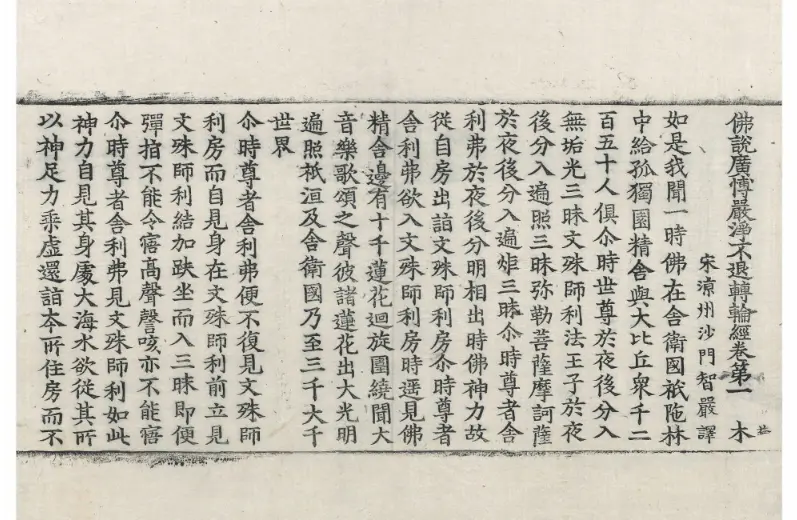 佛說廣愽嚴淨不退轉輪經卷第一　木
宋涼州沙門智嚴譯
如是我聞一時佛在舍衛國祇陁林
中給孤獨園精舍與大比丘衆千二
百五十人俱尒時世尊於夜後分入
無垢光三昧文殊師利法王子於夜
後分入遍照三昧弥勒菩薩摩訶薩
於夜後分入遍炬三昧尒時尊者舍
利弗於夜後分明相出時佛神力故
從自房出詣文殊師利房尒時尊者
舍利弗欲入文殊師利房時遥見佛
精舍邊有十千蓮花迴旋圍繞聞大
音樂歌頌之聲彼諸蓮花出大光明
遍照祇洹及舍衛國乃至三千大千
世界
尒時尊者舍利弗便不復見文殊師
利房而自見身在文殊師利前立見
文殊師利結加趺坐而入三昧即便
彈指不能令寤高聲謦咳亦不能寤
尒時尊者舍利弗見文殊師利如此
神力自見其身處大海水欲從其所
以神足力乘虛還詣本所住房而不